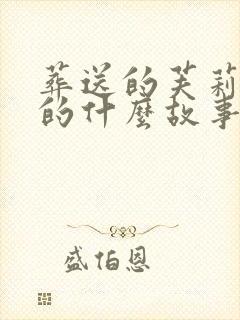 葬送的芙莉
的什麼故事
盛伯恩